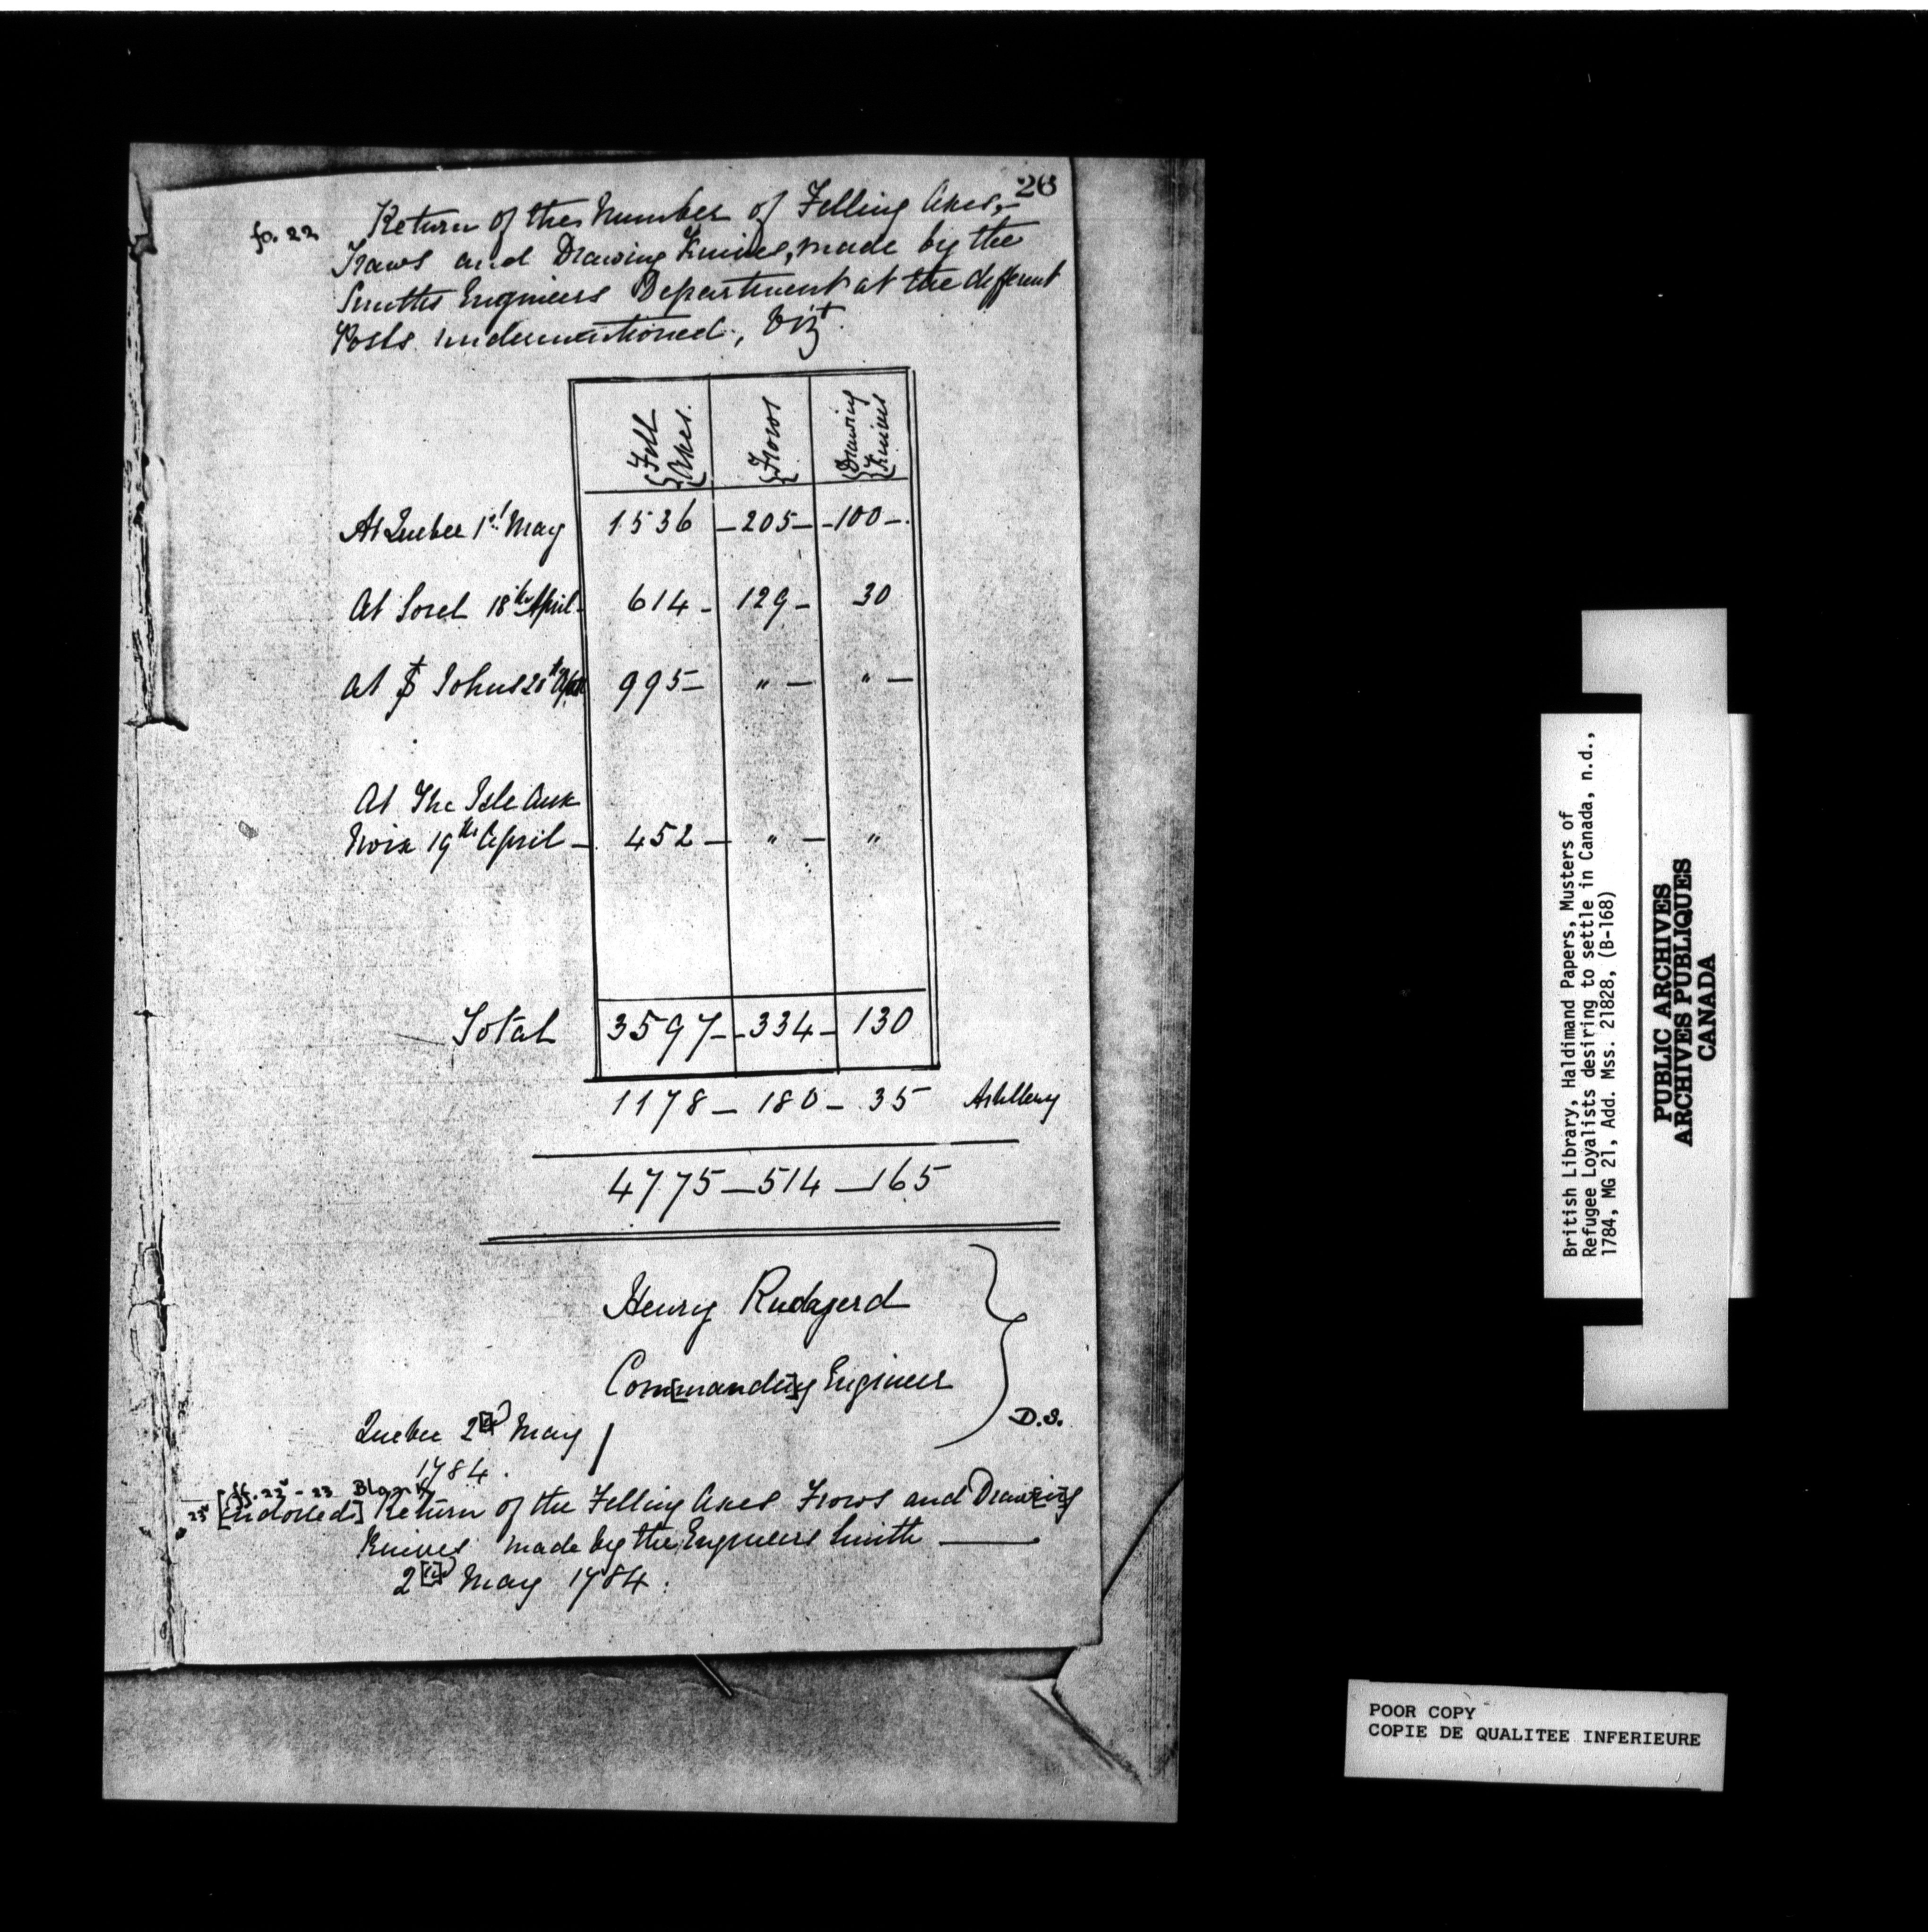 26
fo. 22 Return of the Number of Felling Axes,
Fraws and Drawing Knives, made by the
Smiths Engineers Department at the different
Posts undermentioned, Vizt
Fell Axes. Frows Drawing Knives
At Quebec 1st May 1536 — 205 — 100 —
At Sorel 18th April 614 — 129 — 30
At St Johns 20th April 995 — " — " —
At The Isle Aux
Noix 19th April — 452 — " — "
Total 3597 — 334 — 130
1178 — 180 — 35 Artillery
4775 — 514 — 165
Henry Rudyerd
Com[mandin]g Engineer
D.S.
Quebec 2[n]d May
1784.
ff. 22v - 23 Blank
23v [Endorsed] Return of the Felling Axes Frows and Draw[in]g
Knives made by the Engineers Smith
2[n]d May 1784.
British Library, Haldimand Papers, Musters of
Refugee Loyalists desiring to settle in Canada, n.d.,
1784, MG 21, Add. Mss. 21828, (B-168)
PUBLIC ARCHIVES
ARCHIVES PUBLIQUES
CANADA
POOR COPY
COPIE DE QUALITEE INFERIEURE